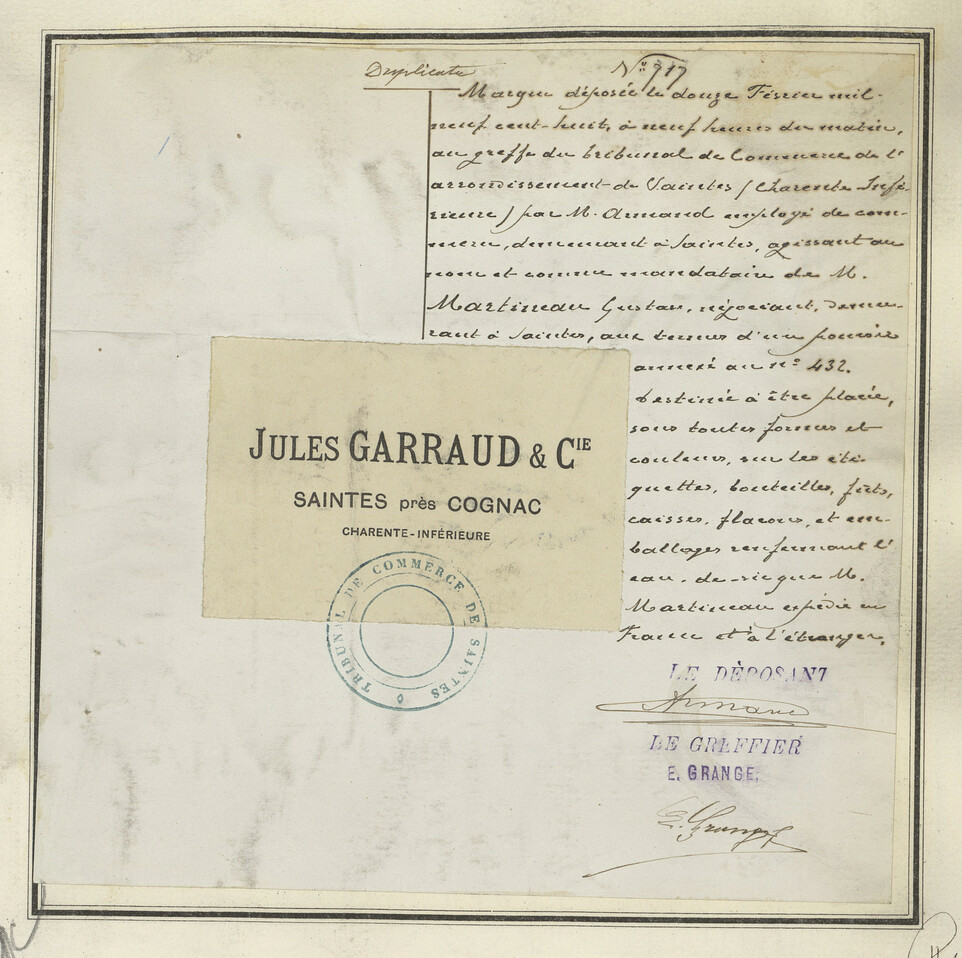 Duplicata
N° 917
Marque déposée le douze Février mil-
neuf cent-huit, à neuf heures du matin,
au greffe du tribunal de Commerce de l'
arrondissement de Saintes (Charente Infé-
rieure) par M. Armand employé de com-
merce, demeurant à Saintes, agissant au
nom et comme mandataire de M.
Martineau Gustave, négociant, demeu-
rant à Saintes, aux termes d'un pouvoir
annexé au n° 432.
Destinée à être placée,
sous toutes formes et
couleurs, sur les éti-
quettes, bouteilles, fûts,
caisses, flacons, et em-
ballages renfermant l'
eau-de-vie que M.
Martineau expédie en
France et à l'étranger.
JULES GARRAUD & CIE
SAINTES près COGNAC
CHARENTE-INFÉRIEURE
TRIBUNAL DE COMMERCE DE SAINTES
LE DÉPOSANT
Armand
LE GREFFIER
E. GRANGE.
E. Grange